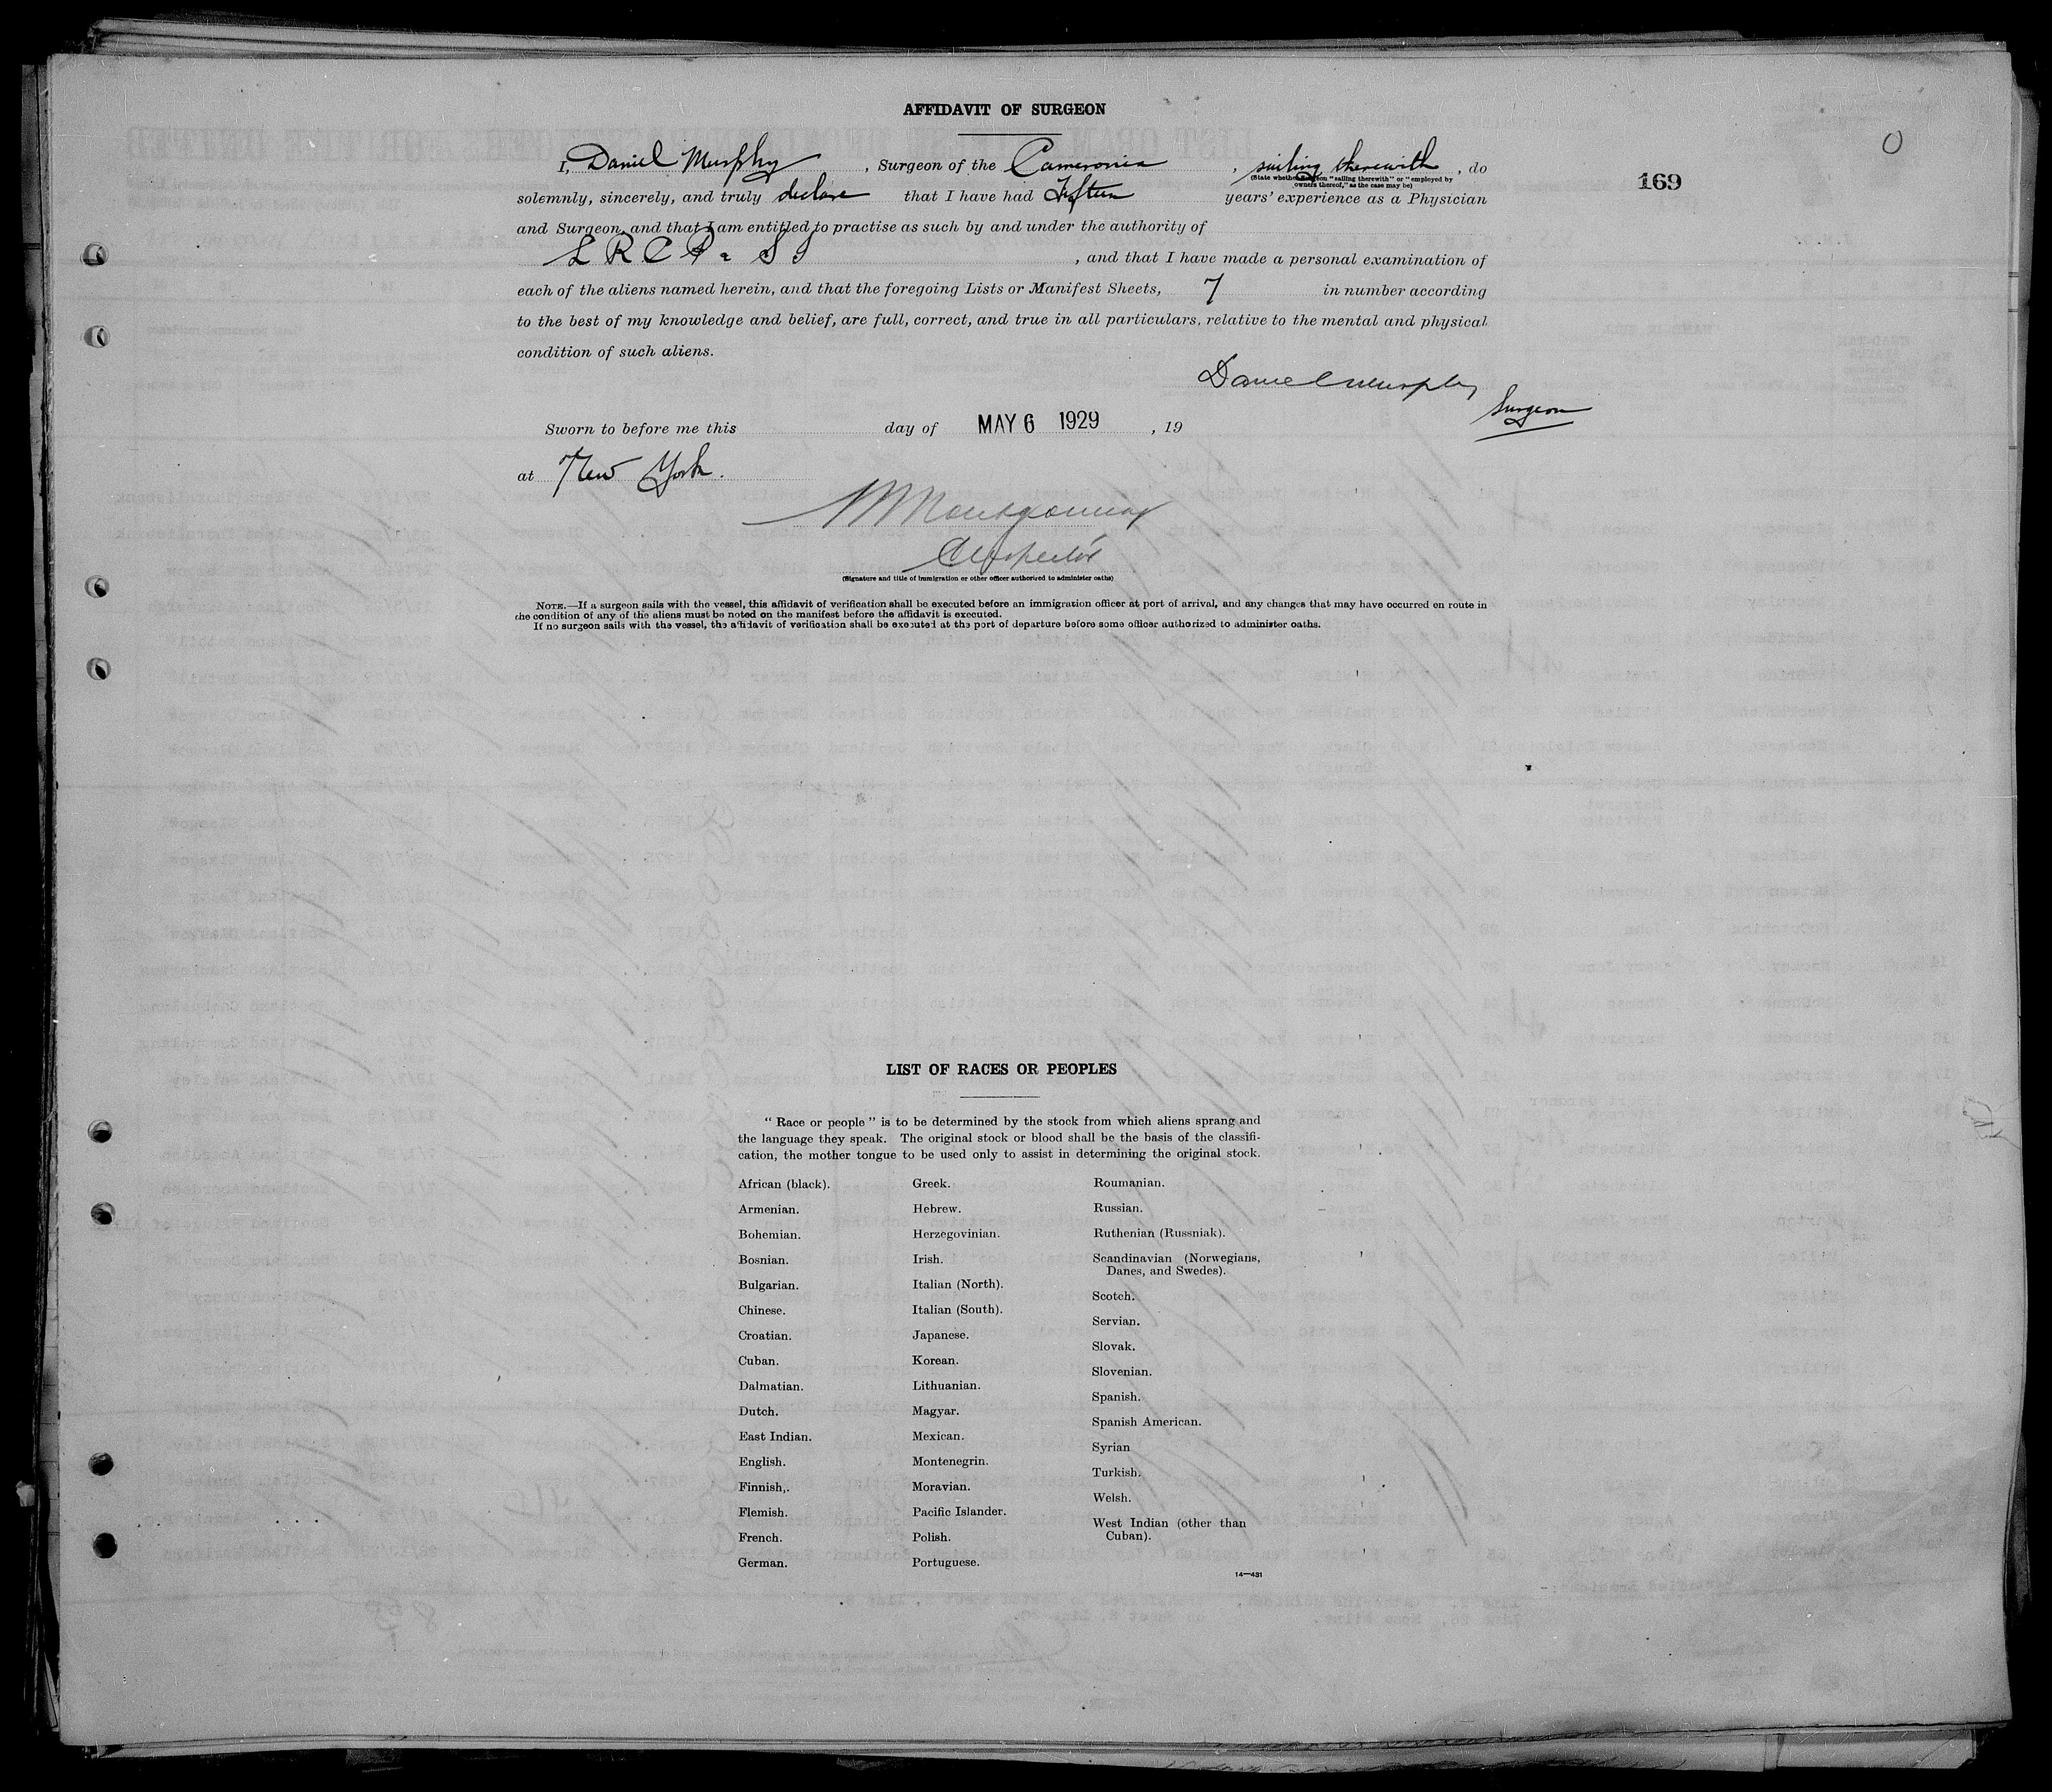 AFFIDAVIT OF SURGEON
I, Daniel Murphy, Surgeon of the Cameronia, sailing therewith, do
(State whether Surgeon "sailing therewith" or "employed by
owners thereof," as the case may be)
169
solemnly, sincerely, and truly declare that I have had Fifteen years' experience as a Physician
and Surgeon, and that I am entitled to practise as such by and under the authority of
L R C P & S I, and that I have made a personal examination of
each of the aliens named herein, and that the foregoing Lists or Manifest Sheets, 7 in number according
to the best of my knowledge and belief, are full, correct, and true in all particulars, relative to the mental and physical
condition of such aliens.
Daniel Murphy
Surgeon
Sworn to before me this day of MAY 6 1929, 19
at New York.
Montgomery
Inspector
(Signature and title of immigration or other officer authorized to administer oaths)
NOTE.—If a surgeon sails with the vessel, this affidavit of verification shall be executed before an immigration officer at port of arrival, and any changes that may have occurred en route in
the condition of any of the aliens must be noted on the manifest before the affidavit is executed.
If no surgeon sails with the vessel, the affidavit of verification shall be executed at the port of departure before some officer authorized to administer oaths.
LIST OF RACES OR PEOPLES
" Race or people " is to be determined by the stock from which aliens sprang and
the language they speak. The original stock or blood shall be the basis of the classifi-
cation, the mother tongue to be used only to assist in determining the original stock.
African (black).
Armenian.
Bohemian.
Bosnian.
Bulgarian.
Chinese.
Croatian.
Cuban.
Dalmatian.
Dutch.
East Indian.
English.
Finnish,.
Flemish.
French.
German.
Greek.
Hebrew.
Herzegovinian.
Irish.
Italian (North).
Italian (South).
Japanese.
Korean.
Lithuanian.
Magyar.
Mexican.
Montenegrin.
Moravian.
Pacific Islander.
Polish.
Portuguese.
Roumanian.
Russian.
Ruthenian (Russniak).
Scandinavian (Norwegians,
Danes, and Swedes).
Scotch.
Servian.
Slovak.
Slovenian.
Spanish.
Spanish American.
Syrian
Turkish.
Welsh.
West Indian (other than
Cuban).
14—431